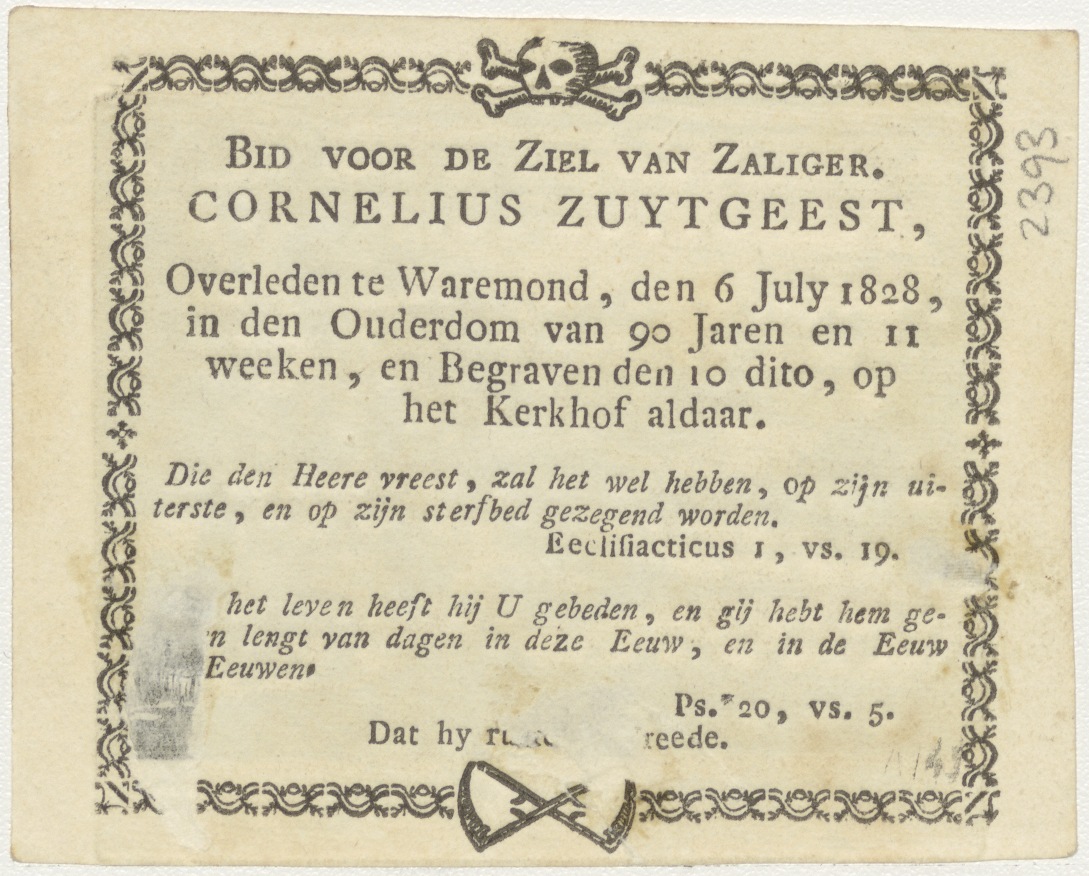 BID VOOR DE ZIEL VAN ZALIGER.
CORNELIUS ZUYTGEEST,
Overleden te Waremond, den 6 July 1828,
in den Ouderdom van 90 Jaren en 11
weeken, en Begraven den 10 dito, op
het Kerkhof aldaar.
Die den Heere vreest, zal het wel hebben, op zijn ui-
terste, en op zijn sterfbed gezegend worden.
Eeclisiacticus 1, vs. 19.
het leven heeft hij U gebeden, en gij hebt hem ge-
n lengt van dagen in deze Eeuw, en in de Eeuw
Eeuwen.
Ps. 20, vs. 5.
Dat hy reede.
2393